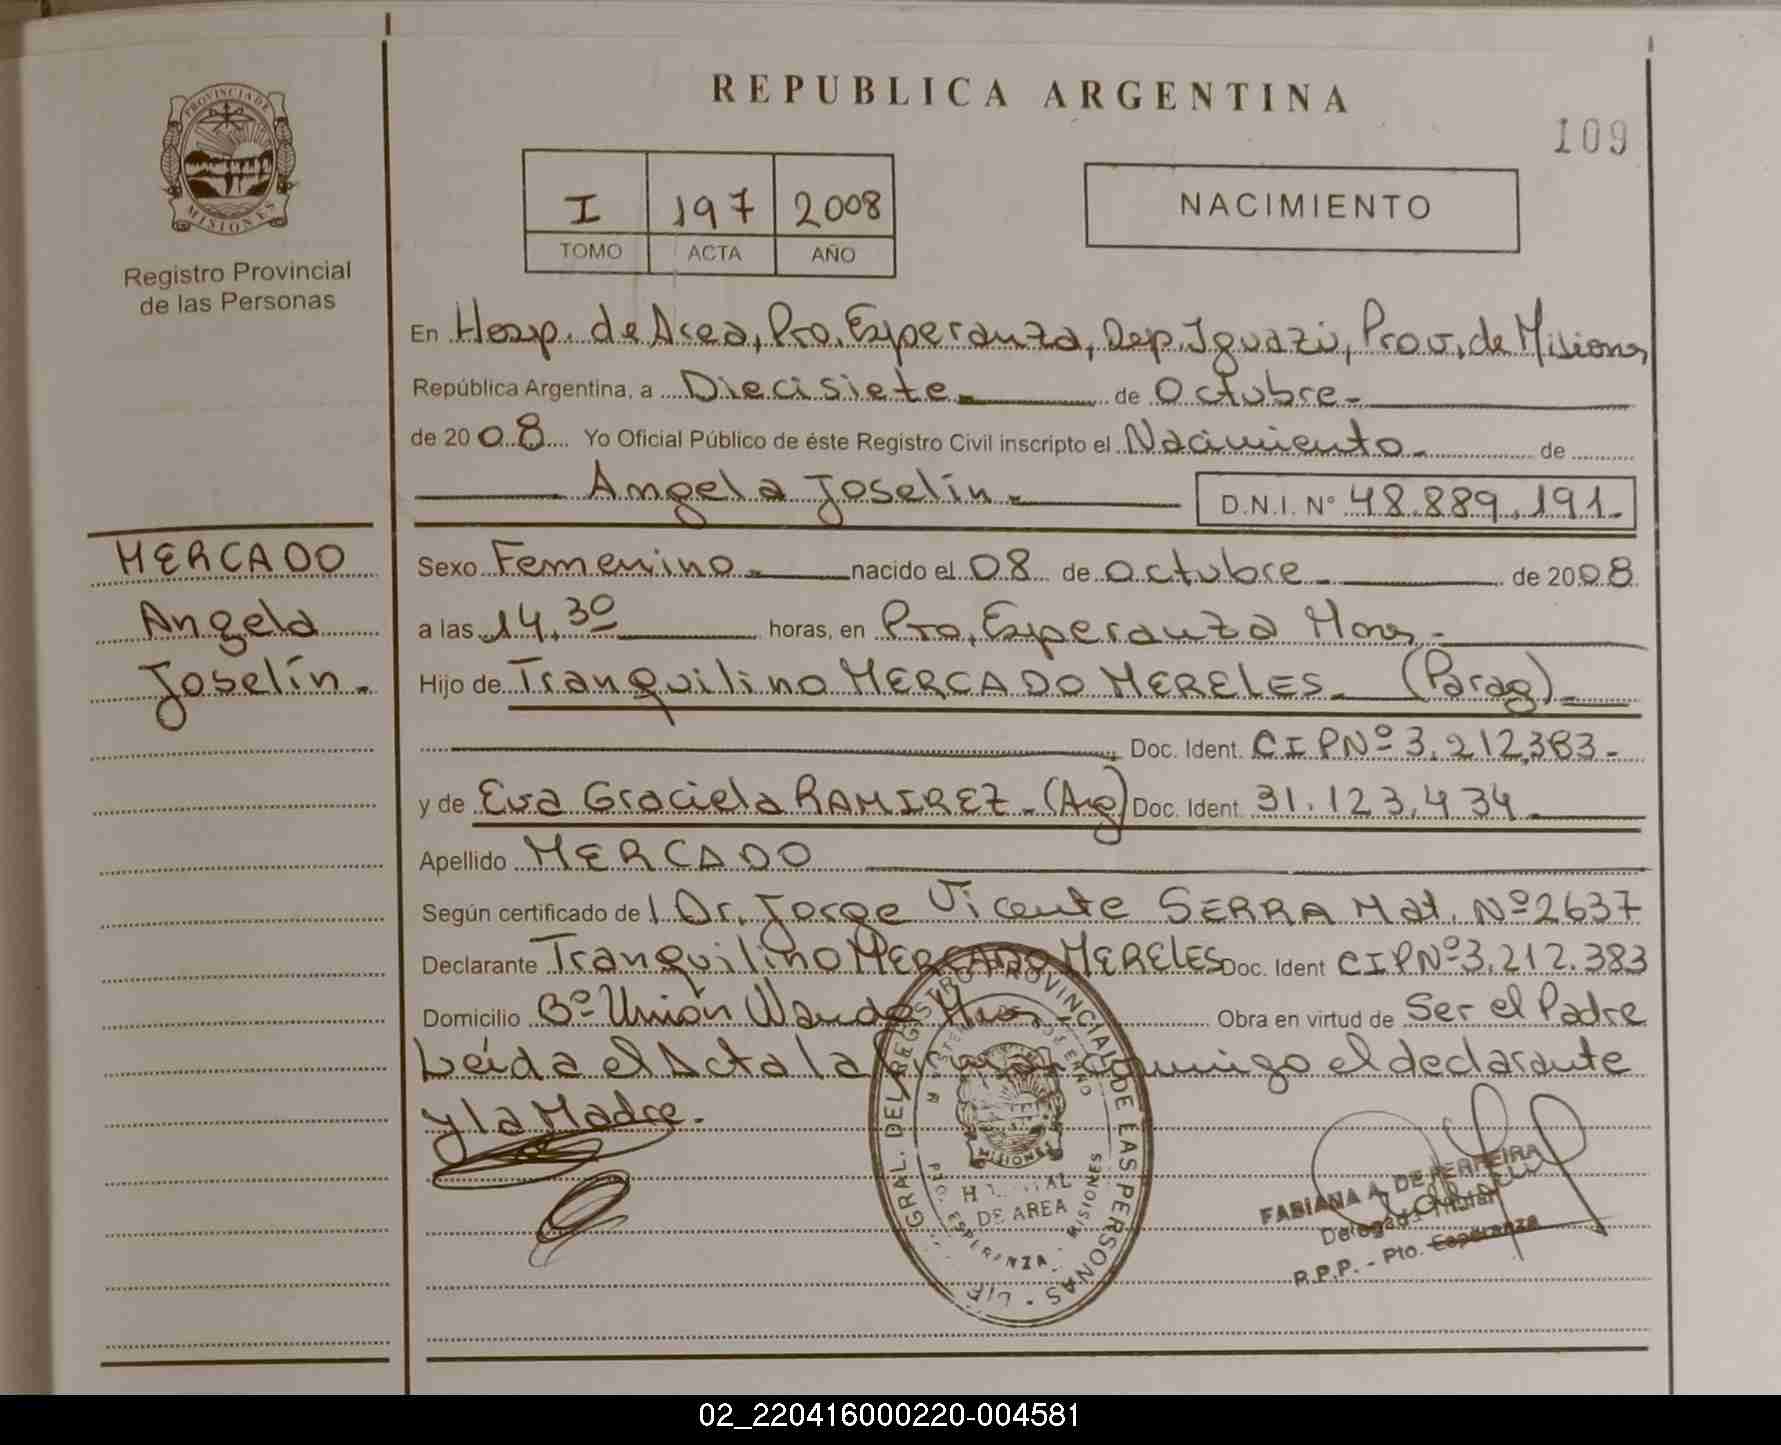 REPUBLICA ARGENTINA
109
PROVINCIA DE
MISIONES
Registro Provincial
de las Personas
I 197 2008
TOMO ACTA AÑO
NACIMIENTO
En Hosp. de Area, Pto. Esperanza, Dep. Iguazú, Prov. de Misiones
República Argentina, a Diecisiete de Octubre
de 2008 Yo Oficial Público de éste Registro Civil inscripto el Nacimiento de
Angela Joselín D.N.I. Nº 48.889.191
MERCADO
Angela
Joselín.
Sexo Femenino nacido el 08 de octubre de 2008
a las 14,30 horas, en Pto. Esperanza Mnes
Hijo de Tranquilino MERCADO MERELES (Parag)
Doc. Ident. CIPNº 3.212.383
y de Eva Graciela RAMIREZ (Arg) Doc. Ident. 31.123.434
Apellido MERCADO
Según certificado de Dr. Jorge Vicente SERRA Mat. Nº 2637
Declarante Tranquilino MERCADO MERELES Doc. Ident CIPNº 3.212.383
Domicilio Bº Unión Wanda Mnes Obra en virtud de Ser el Padre
Leída el Acta la firman conmigo el declarante
y la Madre.
GRAL. DEL REGISTRO PROVINCIAL DE LAS PERSONAS
MISIONES
DE AREA
PTO. ESPERANZA - MISIONES
FABIANA A. DE FERREIRA
Delegada Titular
R.P.P. - Pto. Esperanza
02_220416000220-004581